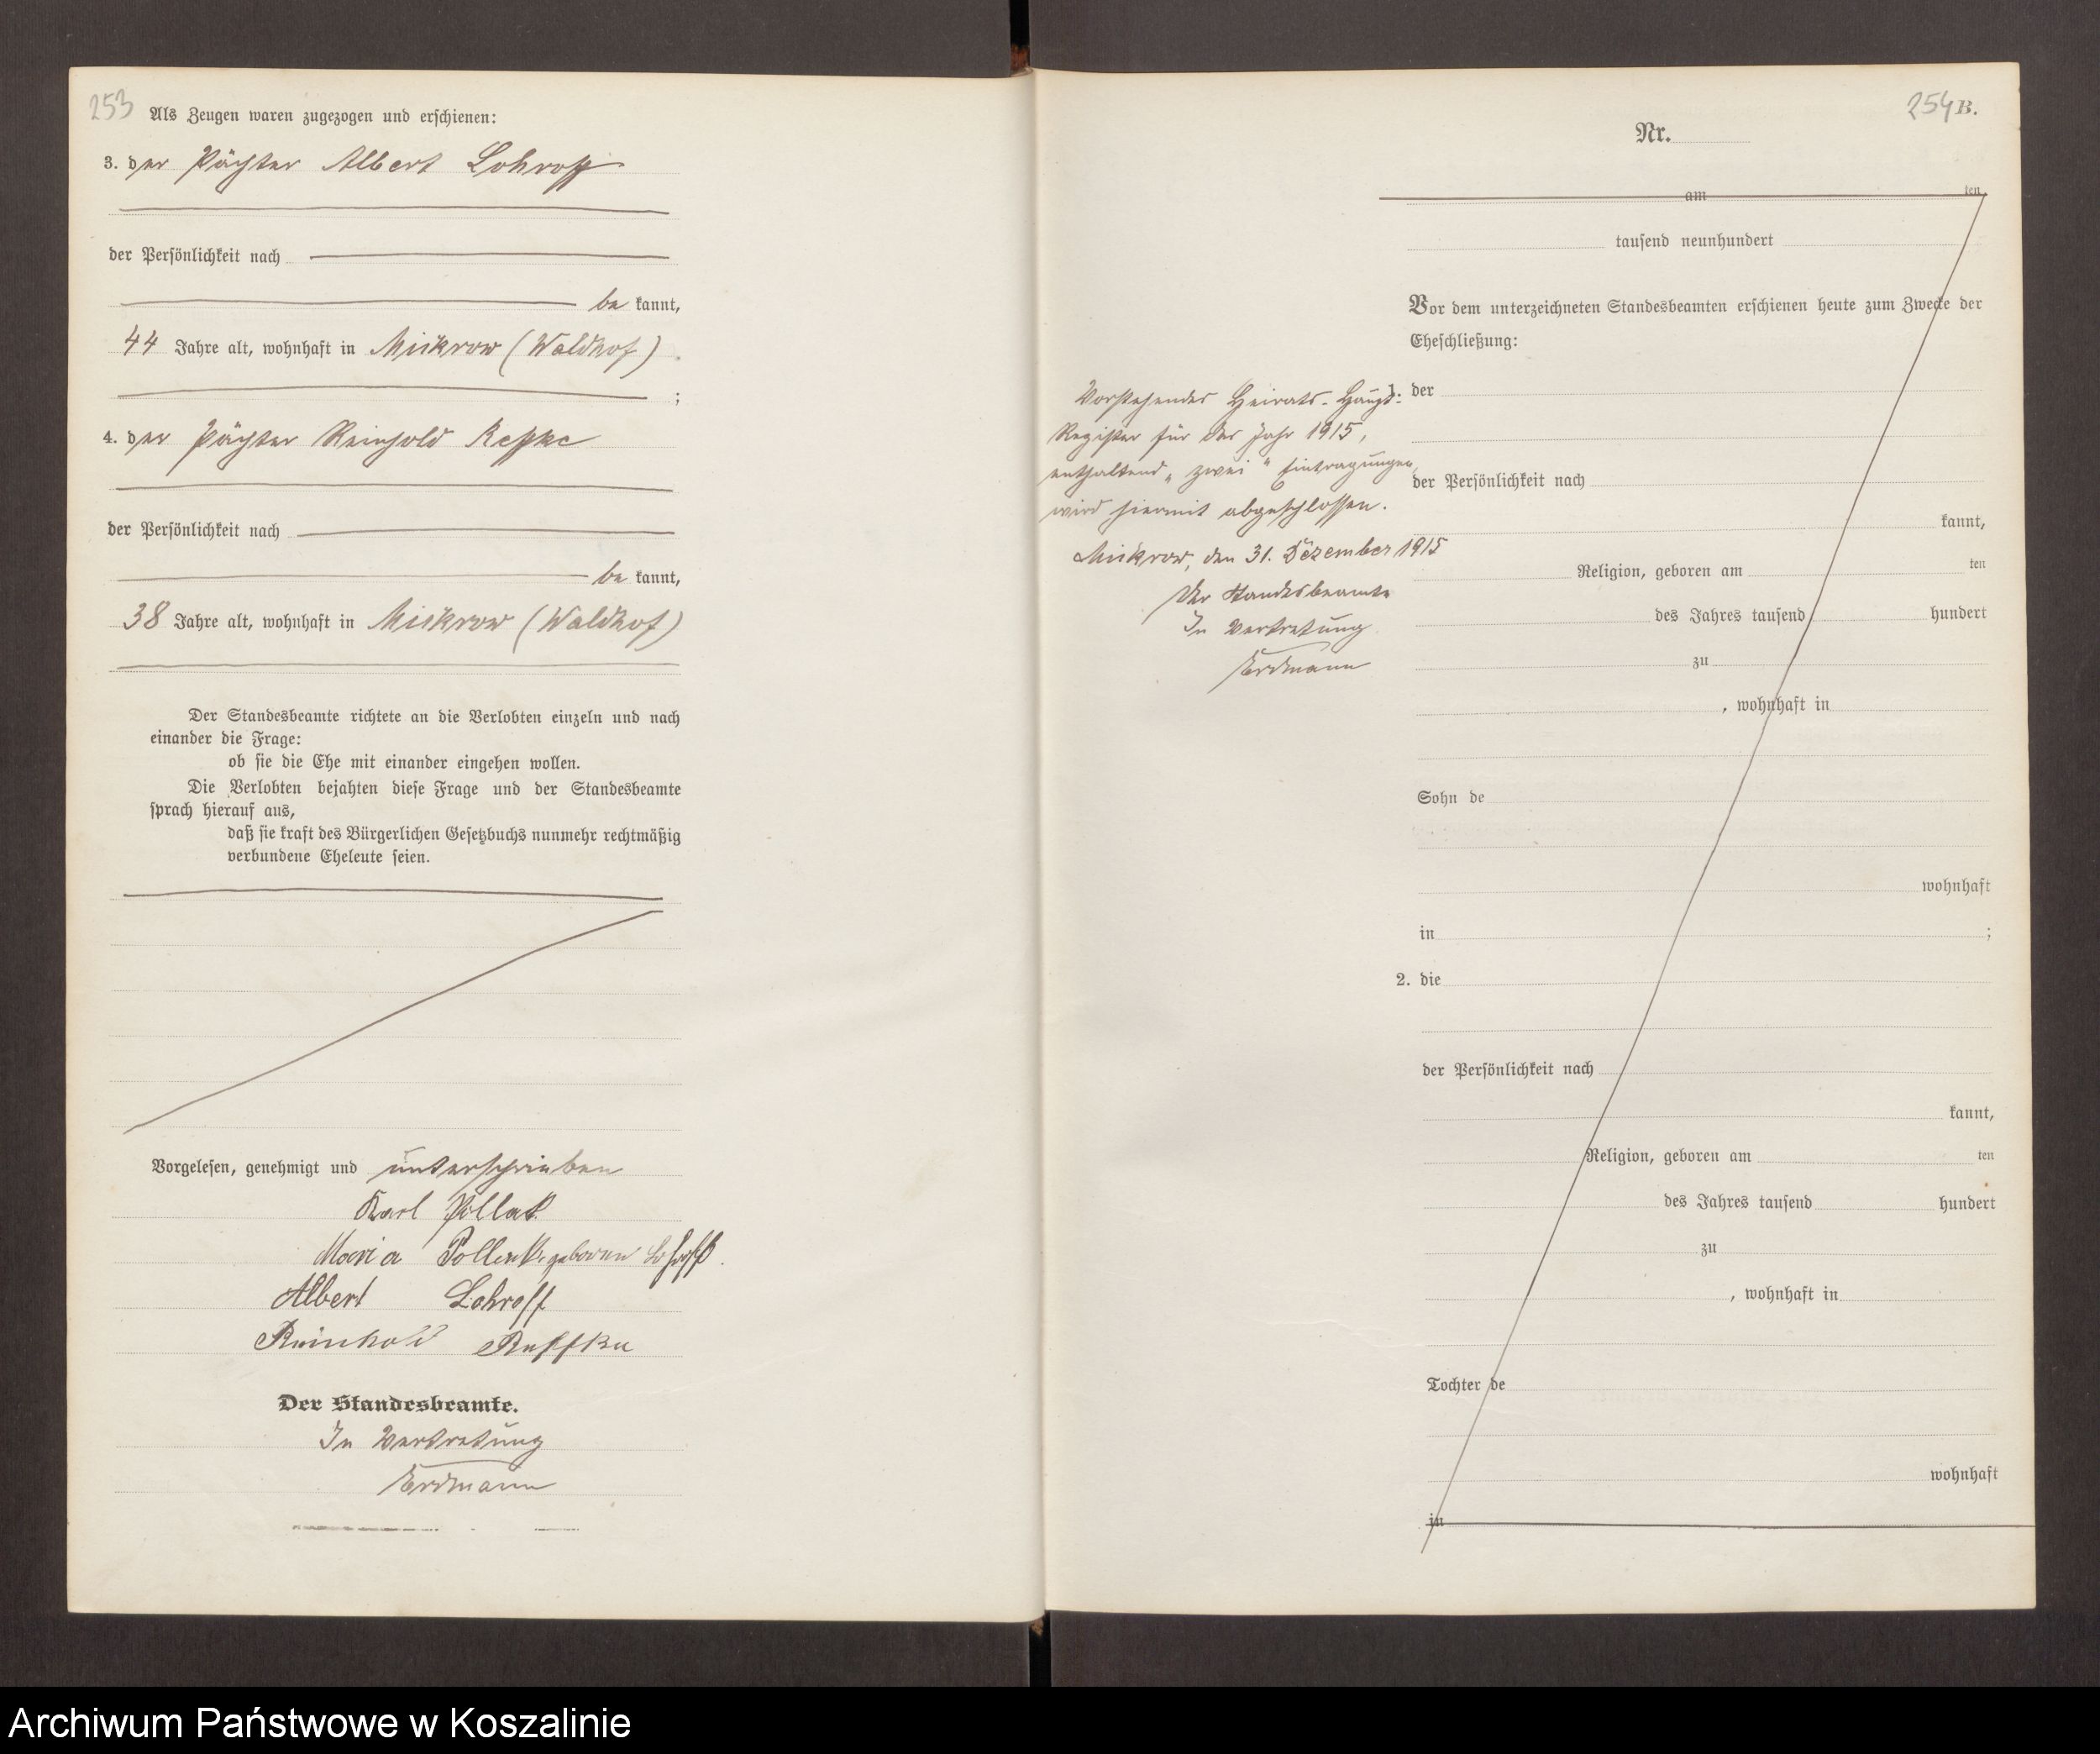 253
Als Zeugen waren zugezogen und erschienen:
3. der Pächter Albert Lohroff
der Persönlichkeit nach
be kannt,
44 Jahre alt, wohnhaft in Mickrow (Waldhof)
;
4. der Pächter Reinhold Repke
der Persönlichkeit nach
be kannt,
38 Jahre alt, wohnhaft in Mickrow (Waldhof)
Der Standesbeamte richtete an die Verlobten einzeln und nach
einander die Frage:
ob sie die Ehe mit einander eingehen wollen.
Die Verlobten bejahten diese Frage und der Standesbeamte
sprach hierauf aus,
daß sie kraft des Bürgerlichen Gesetzbuchs nunmehr rechtmäßig
verbundene Eheleute seien.
Vorgelesen, genehmigt und unterschrieben
Karl Pollak
Maria geboren Lohroff.
Albert Lohroff
Reinhold
Der Standesbeamte.
In Vertretung
Erdmann
254 B.
Nr.
am ten
tausend neunhundert
Vor dem unterzeichneten Standesbeamten erschienen heute zum Zwecke der
Eheschließung:
Vorstehendes Heirats-Haupt-
Register für das Jahr 1915,
enthaltend "zwei" Eintragungen,
wird hiermit abgeschlossen.
Mickrow, den 31. Dezember 1915
Der Standesbeamte
In Vertretung
Erdmann
1. der
der Persönlichkeit nach
kannt,
Religion, geboren am ten
des Jahres tausend hundert
zu
, wohnhaft in
Sohn de
wohnhaft
in ;
2. die
der Persönlichkeit nach
kannt,
Religion, geboren am ten
des Jahres tausend hundert
zu
, wohnhaft in
Tochter de
wohnhaft
in
Archiwum Państwowe w Koszalinie